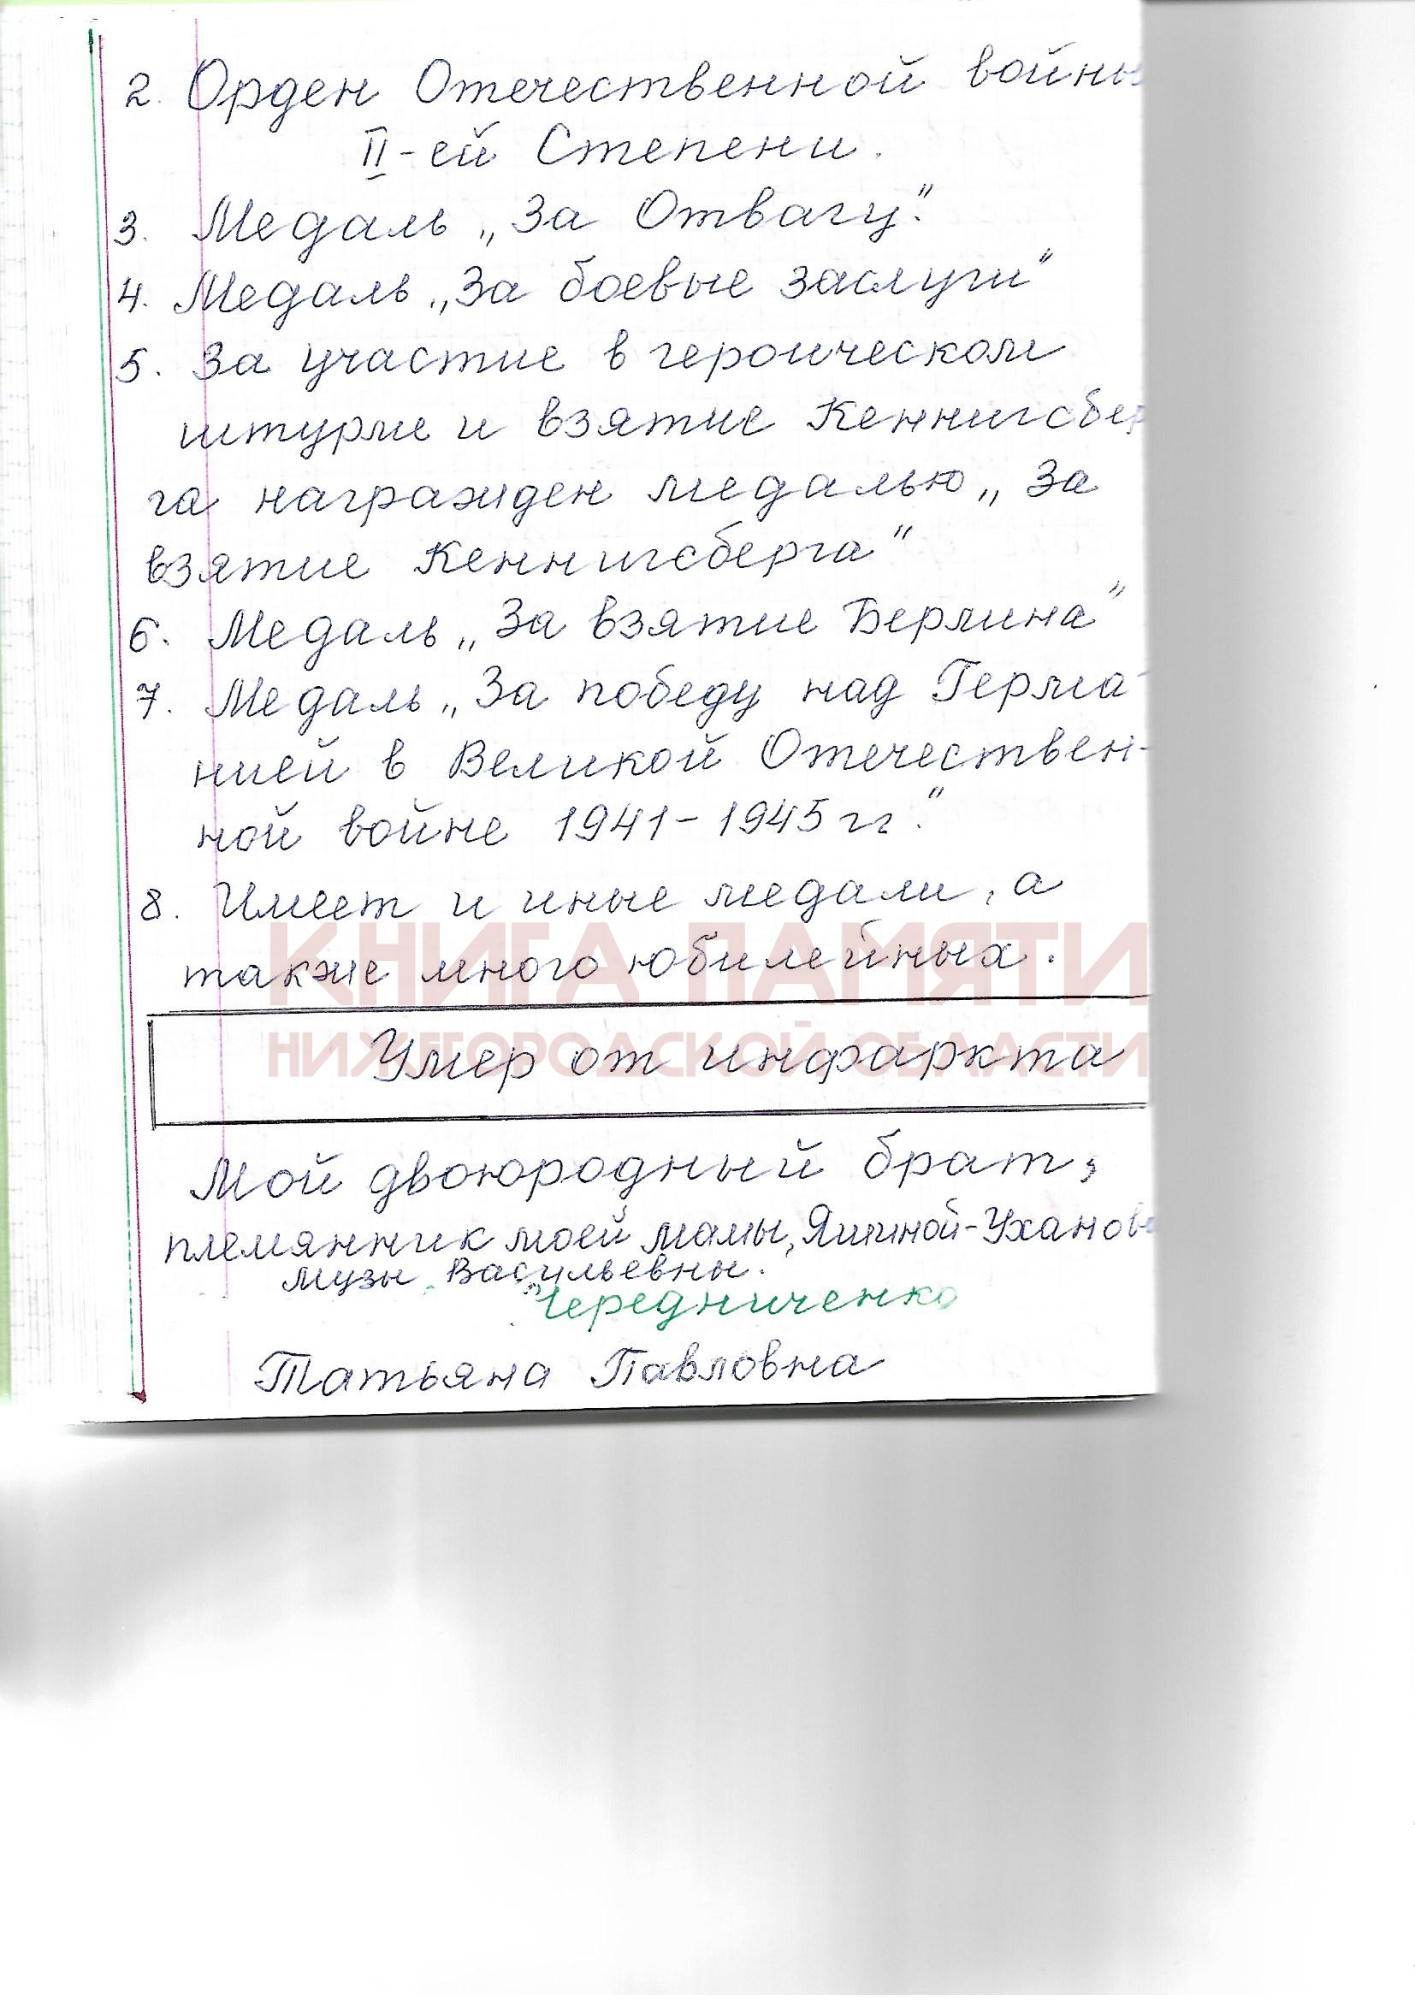 2. Орден Отечественной войны
II-ей Степени.
3. Медаль „За Отвагу".
4. Медаль „За боевые заслуги"
5. За участие в героическом
штурме и взятие Кеннигсбер
га награжден медалью „За
взятие Кеннигсберга"
6. Медаль „За взятие Берлина"
7. Медаль „За победу над Герма-
нией в Великой Отечествен-
ной войне 1941-1945 гг."
8. Имеет и иные медали, а
также много юбилейных.
КНИГА ПАМЯТИ
НИЖЕГОРОДСКОЙ ОБЛАСТИ
Умер от инфаркта
Мой двоюродный брат,
племянник моей мамы, Яшиной-Ухановой
Музы Васильевны.
Чередниченко
Татьяна Павловна